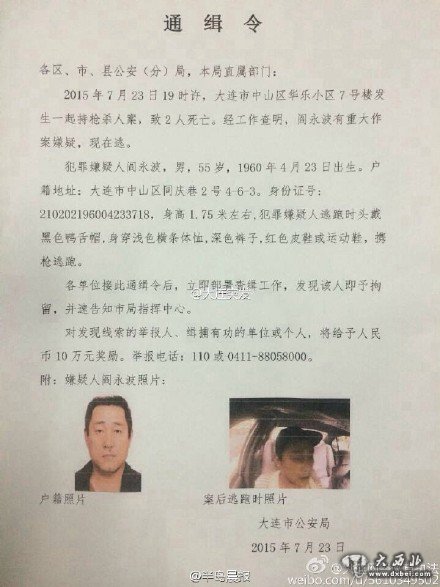 通缉令
各区、市、县公安（分）局，本局直属部门：
2015年7月23日19时许，大连市中山区华乐小区7号楼发
生一起持枪杀人案，致2人死亡。经工作查明，阎永波有重大作
案嫌疑，现在逃。
犯罪嫌疑人阎永波，男，55岁，1960年4月23日出生。户
籍地址：大连市中山区同庆巷2号4-6-3。身份证号：
210202196004233718，身高1.75米左右，犯罪嫌疑人逃跑时头戴
黑色鸭舌帽，身穿浅色横条体恤，深色裤子，红色皮鞋或运动鞋，携
枪逃跑。
各单位接此通缉令后，立即部署查缉工作，发现该人即予拘
留，并速告知市局指挥中心。
对发现线索的举报人、缉捕有功的单位或个人，将给予人民
币10万元奖励。举报电话：110或0411-88058000。
附：嫌疑人阎永波照片：
户籍照片
案后逃跑时照片
大连市公安局
2015年7月23日
@半岛晨报
weibo.com/u/5610549502
大西北
www.dxbei.com